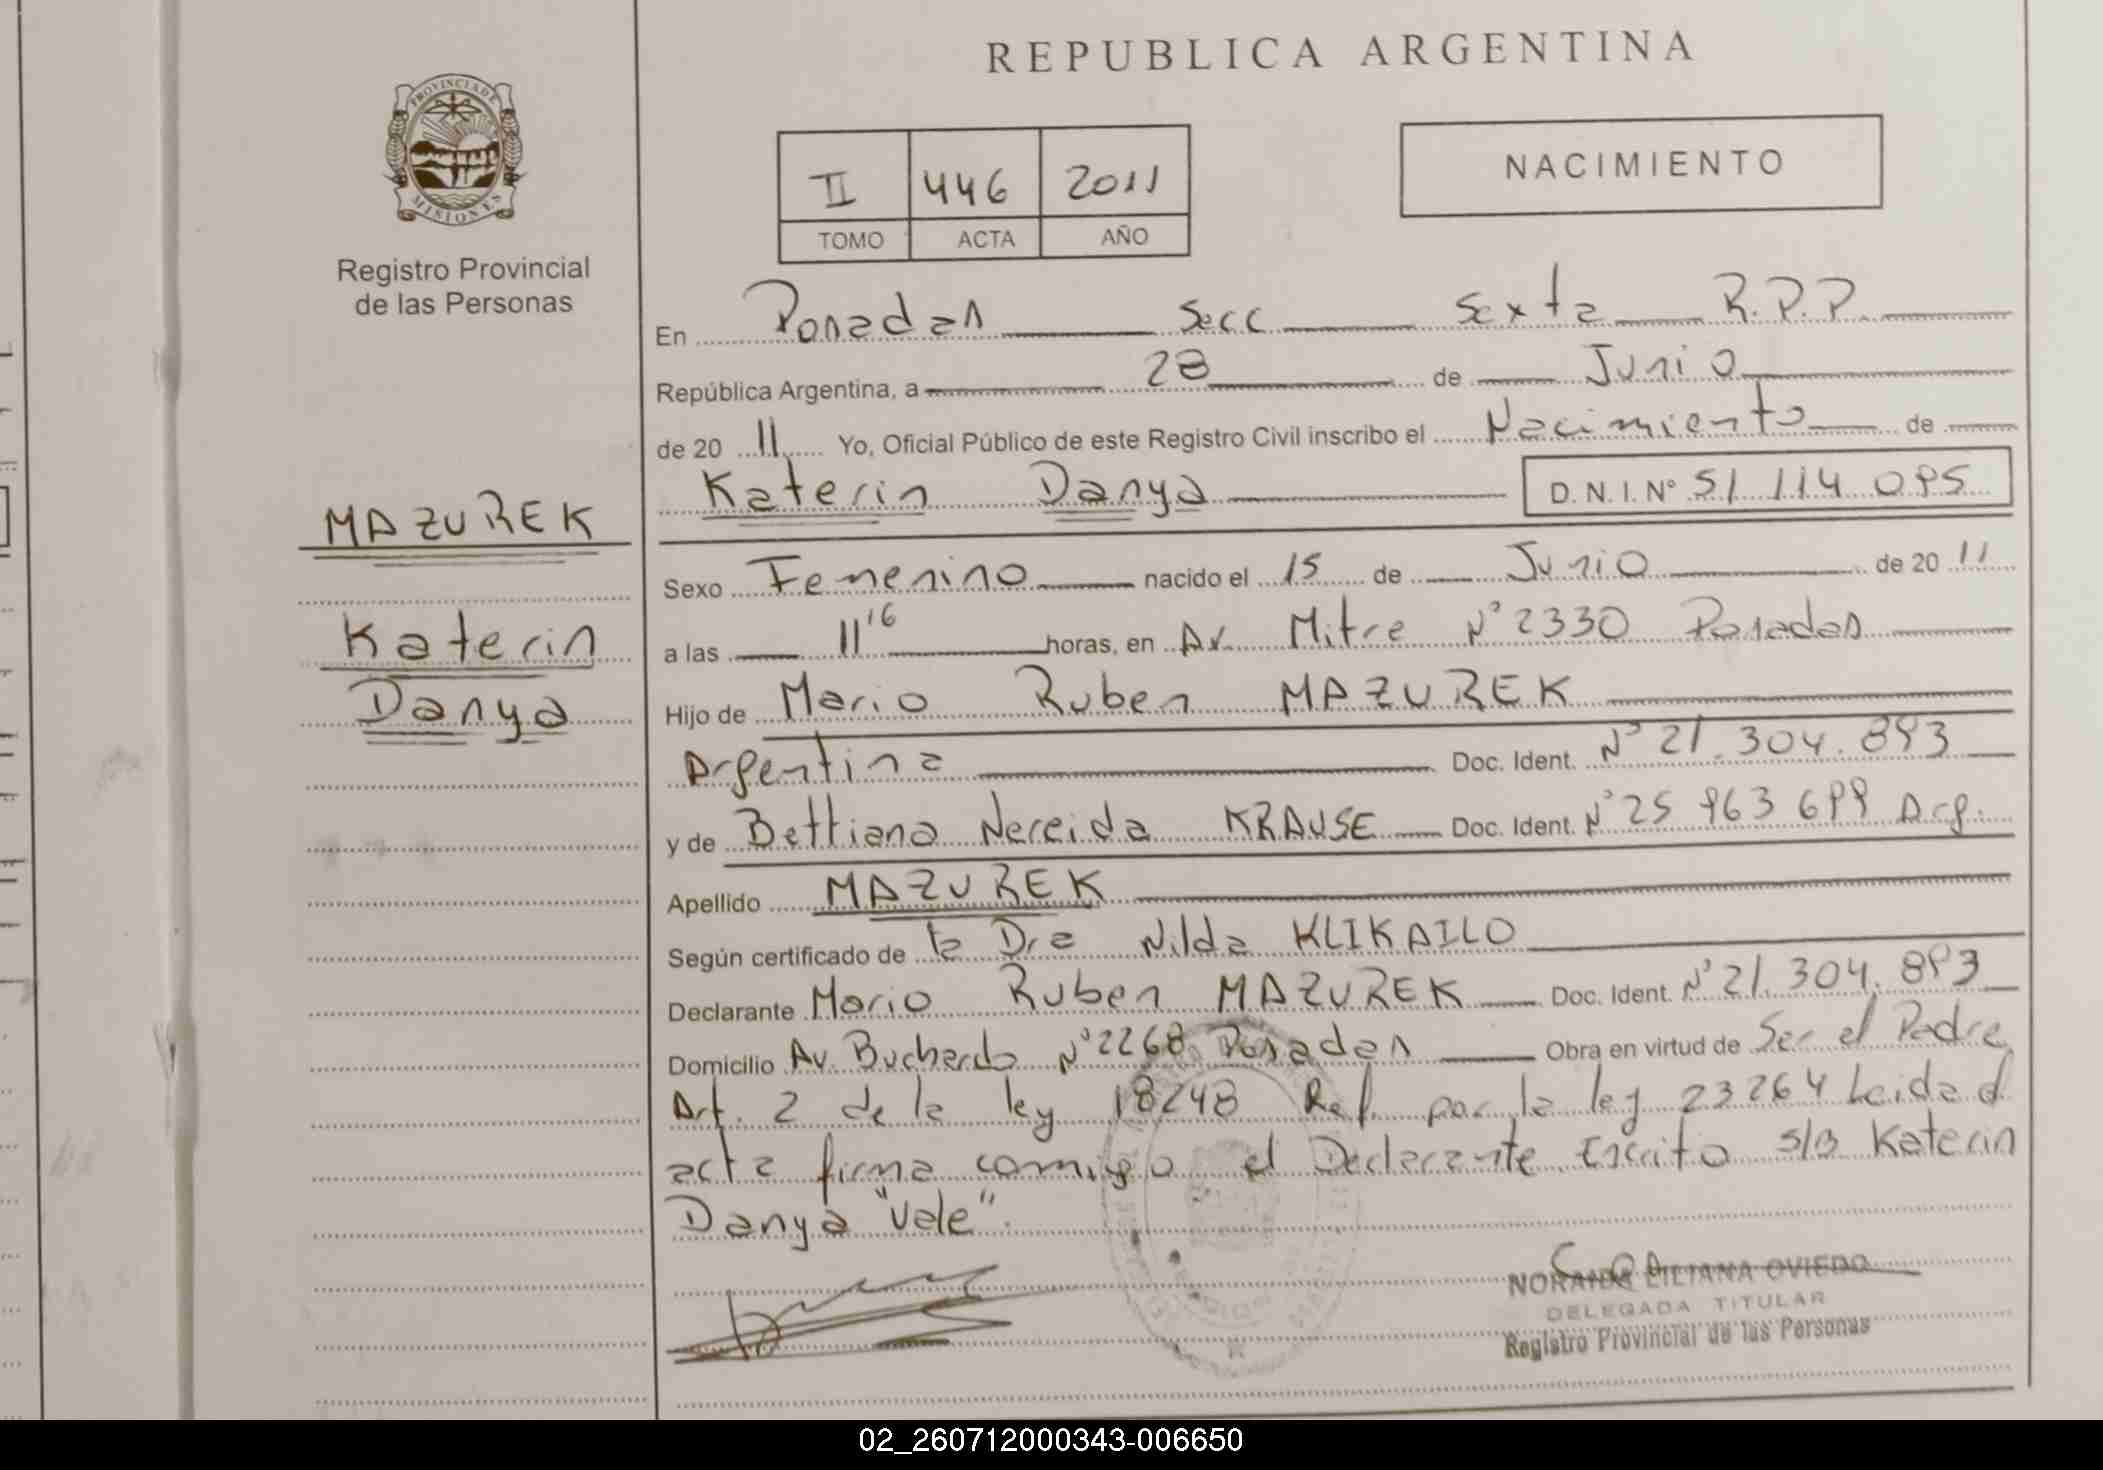 REPUBLICA ARGENTINA
PROVINCIA DE
MISIONES
Registro Provincial
de las Personas
II 446 2011
TOMO ACTA AÑO
NACIMIENTO
MAZUREK
Katerin
Danya
En Posadas Secc Sexta R.P.P.
República Argentina, a 28 de Junio
de 20 11 Yo, Oficial Público de este Registro Civil inscribo el Nacimiento de
Katerin Danya D.N.I. Nº 51 114 095
Sexo Femenino nacido el 15 de Junio de 20 11
a las 11 16 horas, en Av. Mitre Nº 2330 Posadas
Hijo de Mario Ruben MAZUREK
Argentina Doc. Ident. Nº 21.304.893
y de Bettiana Nereida KRAUSE Doc. Ident. Nº 25 963 699 Arg.
Apellido MAZUREK
Según certificado de la Dra Nilda KLIKAILO
Declarante Mario Ruben MAZUREK Doc. Ident. Nº 21.304.893
Domicilio Av. Buchardo Nº 2268 Posadas Obra en virtud de Ser el Padre
Art. 2 de la ley 18248 Ref. por la ley 23264 Leida el
acta firma conmigo el Declarante Escrito s/b Katerin
Danya "Vale".
NORAIDA LILIANA OVIEDO
DELEGADA TITULAR
Registro Provincial de las Personas
02_260712000343-006650